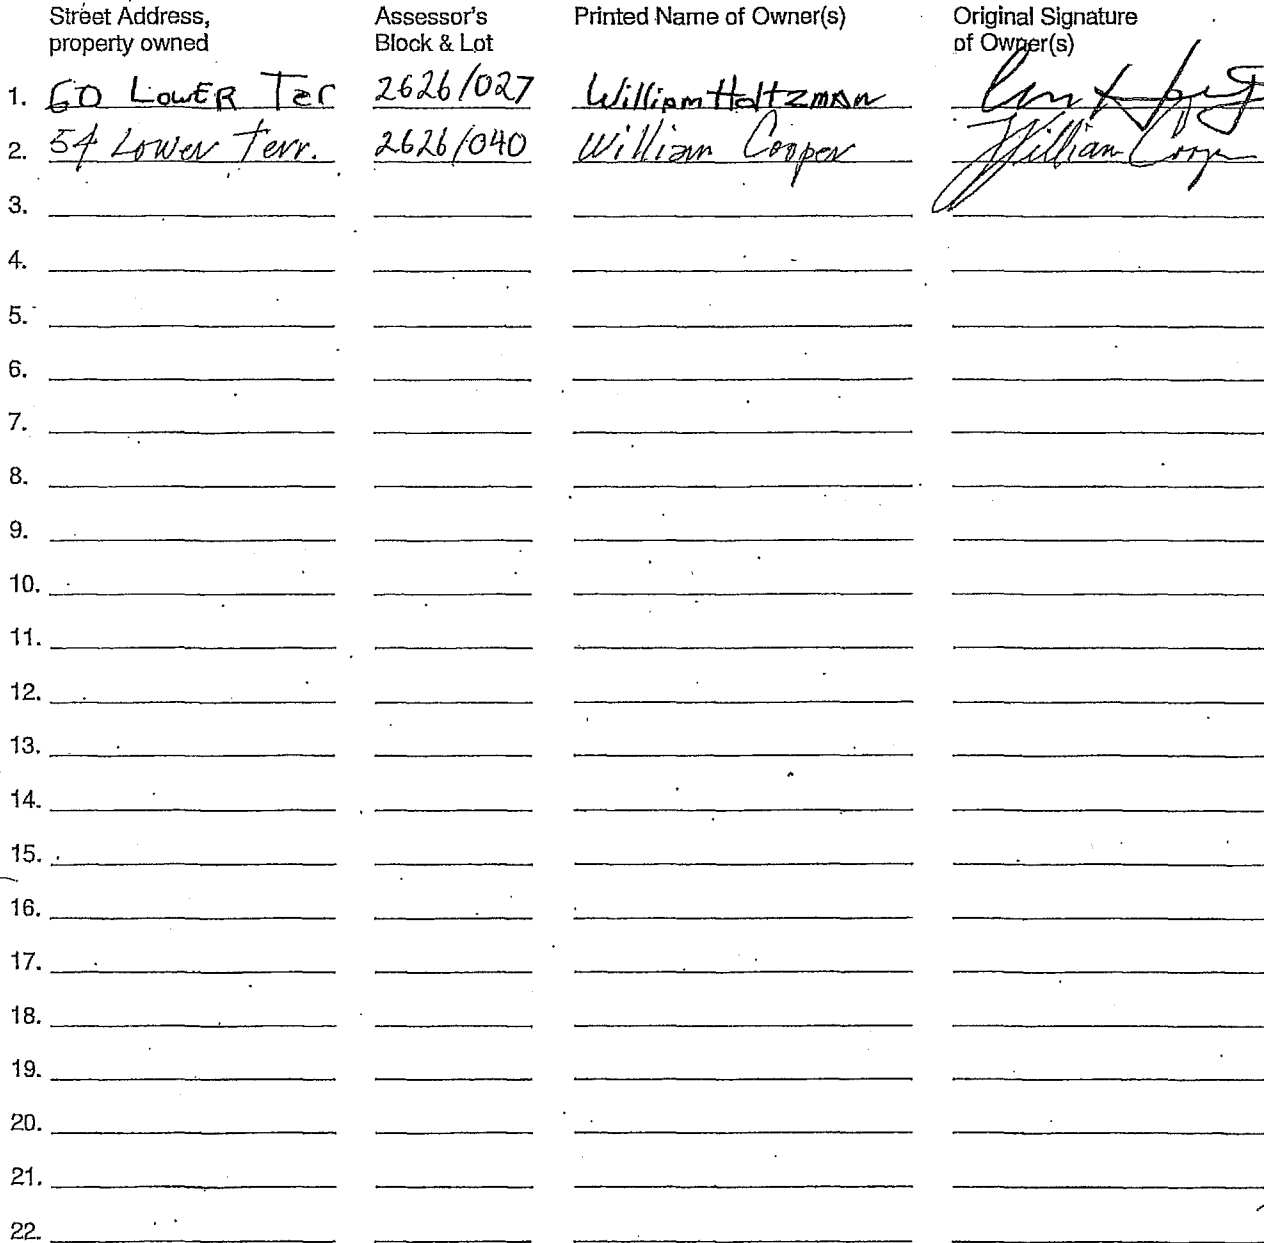 Street Address, property owned Assessor's Block & Lot Printed Name of Owner(s) Original Signature of Owner(s)
1. 60 LowER Ter 2626/027 William Holtzman
2. 54 Lower Terr. 2626/040 William Cooper William Coop
3.
4.
5.
6.
7.
8.
9.
10.
11.
12.
13.
14.
15.
16.
17.
18.
19.
20.
21.
22.